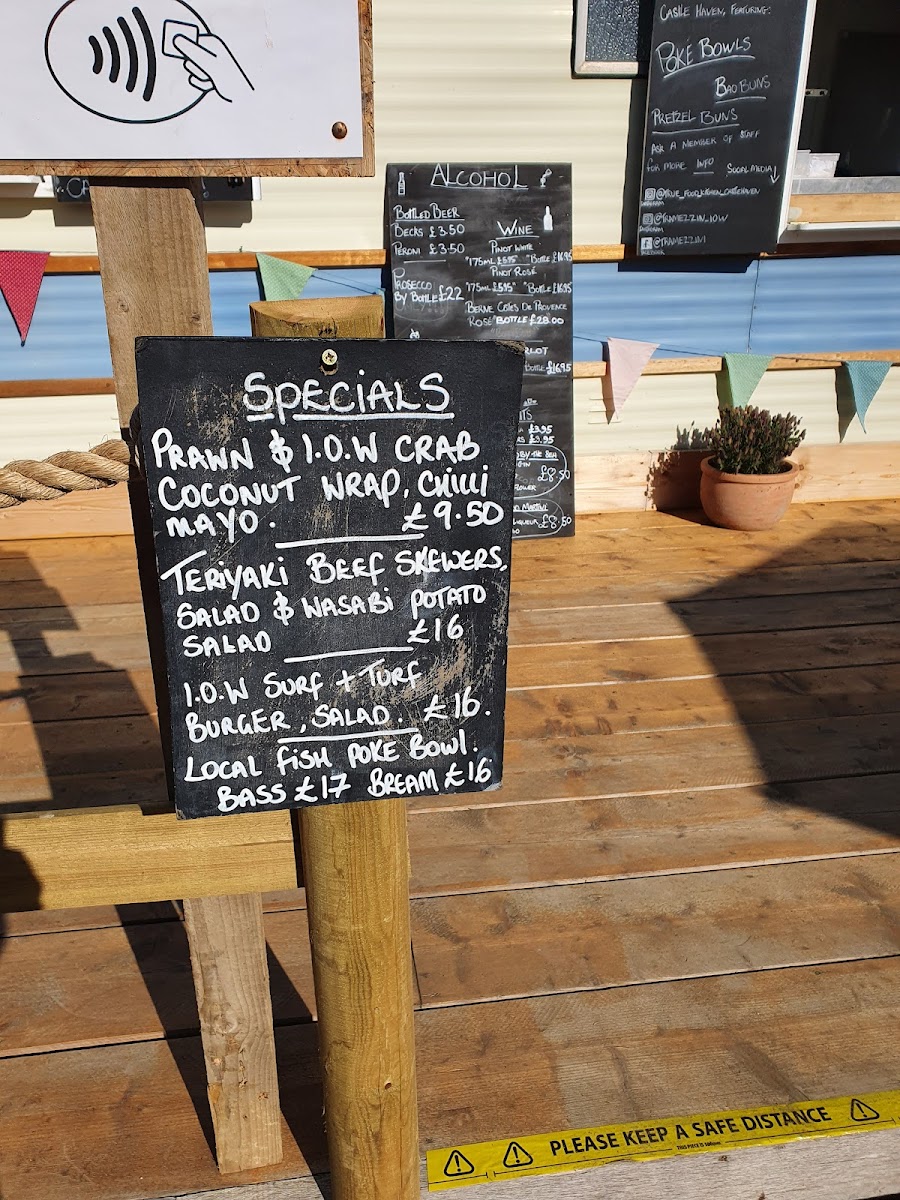 CASTLE HAVEN, FEATURING:
POKÉ BOWLS
BAO BUNS
PRETZEL BUNS
ASK A MEMBER OF STAFF
FOR MORE INFO
SOCIAL MEDIA
@TRAMEZZIN_IOW
@TRAMEZZINI
ALCOHOL
BOTTLED BEER
BECKS £3.50
PERONI £3.50
PROSECCO
BY BOTTLE £22
WINE
PINOT WHITE
"175ML £5.95" "BOTTLE £16.95
PINOT ROSÉ
"175ML £5.95" "BOTTLE £16.95
BERNE CÔTES DE PROVENCE
ROSÉ "BOTTLE £28.00
BOTTLE £16.95
£3.95
£3.95
BY THE SEA
GIN
£8.50
MARTINI
LIQUEUR £8.50
SPECIALS
PRAWN & I.O.W CRAB
COCONUT WRAP, CHILLI
MAYO. £9.50
TERIYAKI BEEF SKEWERS,
SALAD & WASABI POTATO
SALAD £16
I.O.W SURF + TURF
BURGER, SALAD. £16.
LOCAL FISH POKE BOWL.
BASS £17 BREAM £16
PLEASE KEEP A SAFE DISTANCE